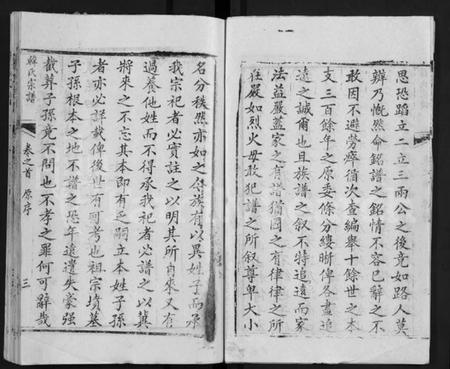 思恐蹈立二立三兩公之後竟如路人莫
辨乃慨然命銘譜之銘情不容已辭之不
敢因不避勞瘁循次查編舉十餘世之本
支三百餘年之原委條分縷晰俾各盡追
遠之誠爾也且族譜之叙不特追遠而家
法益嚴蓋家之有譜猶國之有律律之所
在嚴如烈火毋敢犯譜之所叙尊卑大小
名分秩然亦如之族有以異姓子而承
我宗祀者必實註之以明其所自來又有
過養他姓而不得承我祀者必譜之以冀
將來之不忘其本即有乏嗣立本姓子孫
者亦必詳載俾後世有可考也祖宗墳墓
子孫根本之地不譜之恐年遠遺失豪強
戤葬子孫竟不問也不孝之罪何可辭哉
氏宗譜
卷之首 原序
三